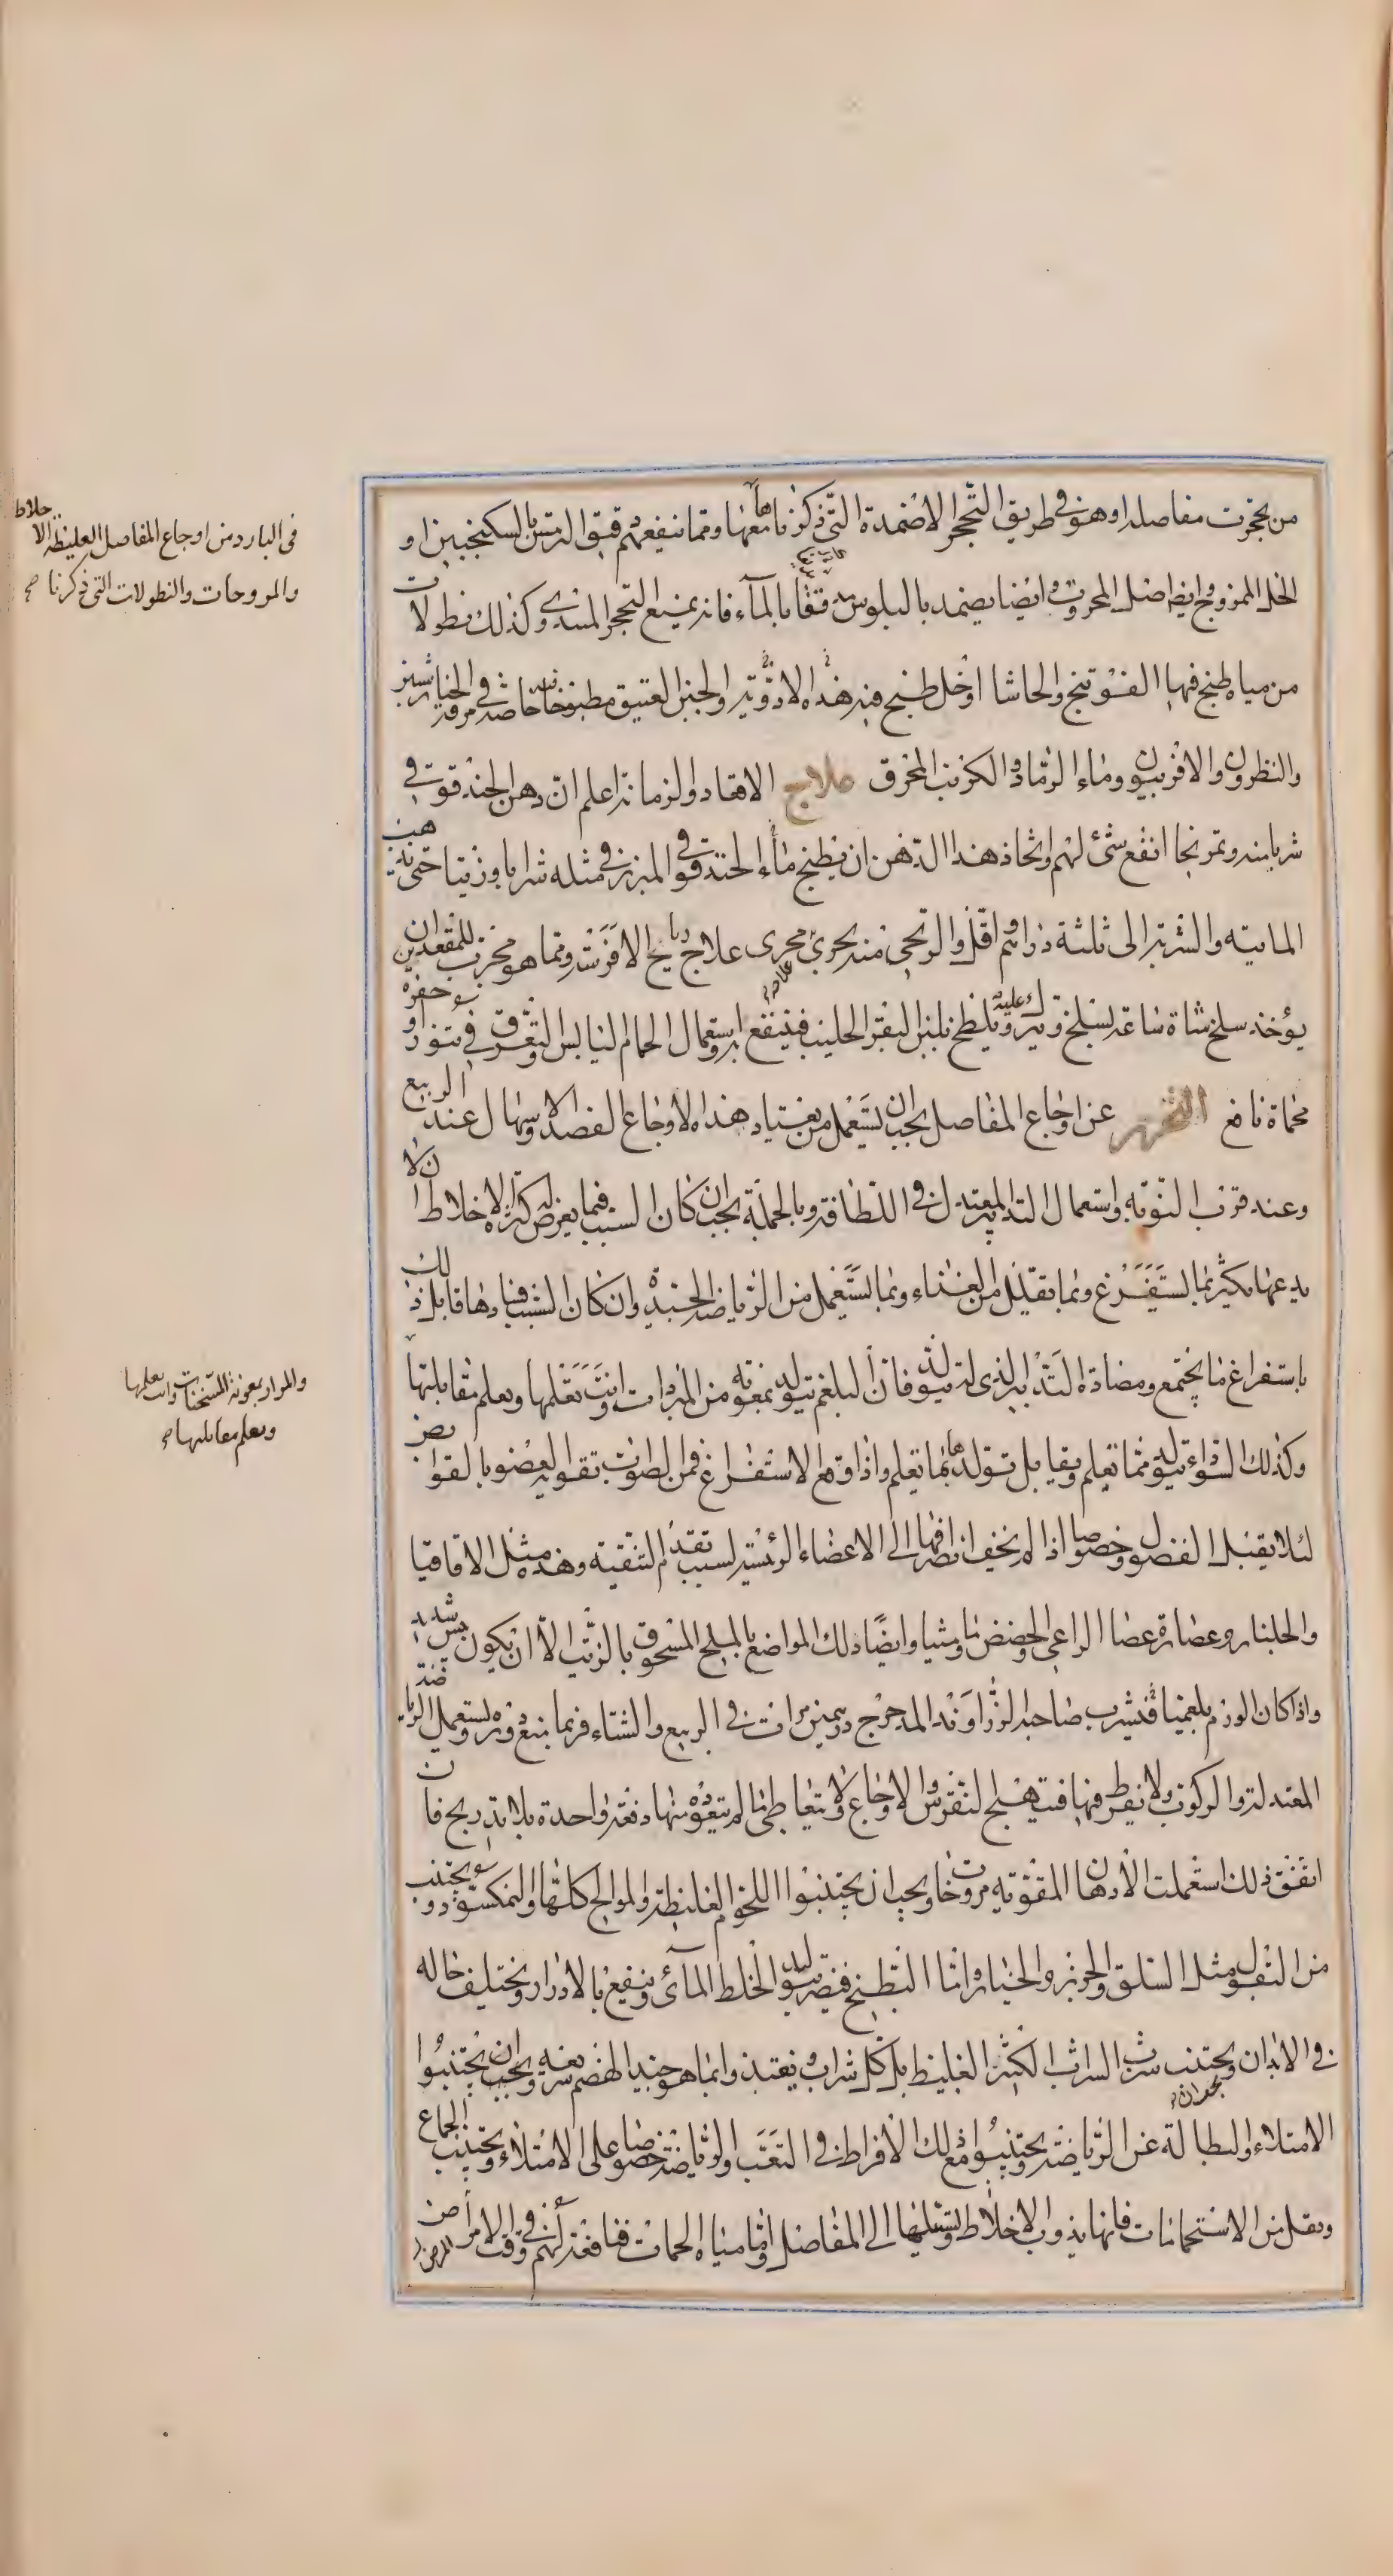 من تحجرت مفاصله او هو في طريق التحجر الاضمدة التي ذكرناها معها ومما ينفعهم دقيق الترمس بالسكنجبين او
الخل الممزوج وايضا اصل المحروت وايضا يضمد بالبلبوس مدقوقا بالماء فانه يمنع التحجر المبتدى وكذلك نطولات
من مياه طبخ فيها الفوتنج والحاشا او خل طبخ فيه هذه الادوية والجبن العتيق مطبوخا خاصة في مرقة الخنازير
والنطرون والافربيون وماء الرماد والكرنب المحرق علاج الاقعاد والزمانة اعلم ان دهن الحندقوقى
شربا منه وتمرخا انفع شئ لهم واتخاذ هذا الدهن ان يطبخ ماء الحندقوقى المبزر في مثله شرابا وزيتا حتى يذهب
المائية والشربة الى ثلثة دراهم واقل والريحي منه يجرى مجرى علاج رياح الافرسة ومما هو مجرب للمقعدين ان
يؤخذ سلخ شاة ساعة يسلخ ويترك عليه ويلطخ بلبن البقر الحليب فينتفع به واستعمال الحمام اليابس والتعرق في تنور او حفرة
محماة نافع التحرز عن اوجاع المفاصل يجب ان يستعمل من يعتاد هذه الاوجاع الفصد والاسهال عند الربيع
وعند قرب النوبة واستعمال التدبير المعتدل في اللطافة وبالجملة يجب ان كان السبب فيما يعرض كثرة الاخلاط ان لا
يدعها يكثر بما يستفرغ وبما يقلل من الغذاء وبما يستعمل من الرياضة الجيدة وان كان السبب فسادها قابل ذلك
باستفراغ ما يجتمع ومضادة التدبير الذى له يتولد فان البلغم يتولد بمعونة من المبردات وانت تعلمها وتعلم مقابلتها
وكذلك السوداء يتولد مما تعلم ويقابل تولدها بما تعلم واذا وقع الاستفراغ فمن الصواب تقوية العضو بالقوابض
لئلا يقبل الفضول وخصوصا اذا لم يخف انصرافها الى الاعضاء الرئيسة لسبب تقدم التنقية وهذه مثل الاقاقيا
والجلنار وعصارة عصا الراعى والحضض وماميثا وايضا دلك المواضع بالملح المسحوق بالزيت الا ان يكون يبس شديد
واذا كان الورم بلغميا فشرب صاحبه الزراوند المدحرج درهمين مرات في الربيع والشتاء فربما منع دوره ويستعمل الرياضة
المعتدلة والركوب ولا يفرط فيها فتهيج النقرس والاوجاع ولا يتعاطى ما لم يتعوده منها دفعة واحدة بلا تدريج فان
اتفق ذلك استعملت الادهان المقوية مروخات ويجب ان يجتنبوا اللحوم الغليظة والموالح كلها والنمكسود ويجتنب
من البقول مثل السلق والجزر والخيار واما البطيخ فيضر بتوليد الخلط المائى وينفع بالادرار ويختلف حاله
في الابدان ويجتنب شرب الشراب الكثير الغليظ بل كل شراب ويغتذ وا بما هو جيد الهضم سريعه ويجب ان يجتنبوا
الامتلاء والبطالة عن الرياضة ويجتنبوا مع ذلك الافراط في التعب والرياضة خصوصا على الامتلاء ويجتنب الجماع
ويقل من الاستحمامات فانها يذوب الاخلاط ويسيلها الى المفاصل واما مياه الحمات فنافعة لهم في وقت الامراض المرض
في البارد من اوجاع المفاصل الغليظة الاخلاط
والمروحات والنطولات التي ذكرنا صح
والمرار بمعونة المسخنات وانت تعلمها
وتعلم مقابلتها صح